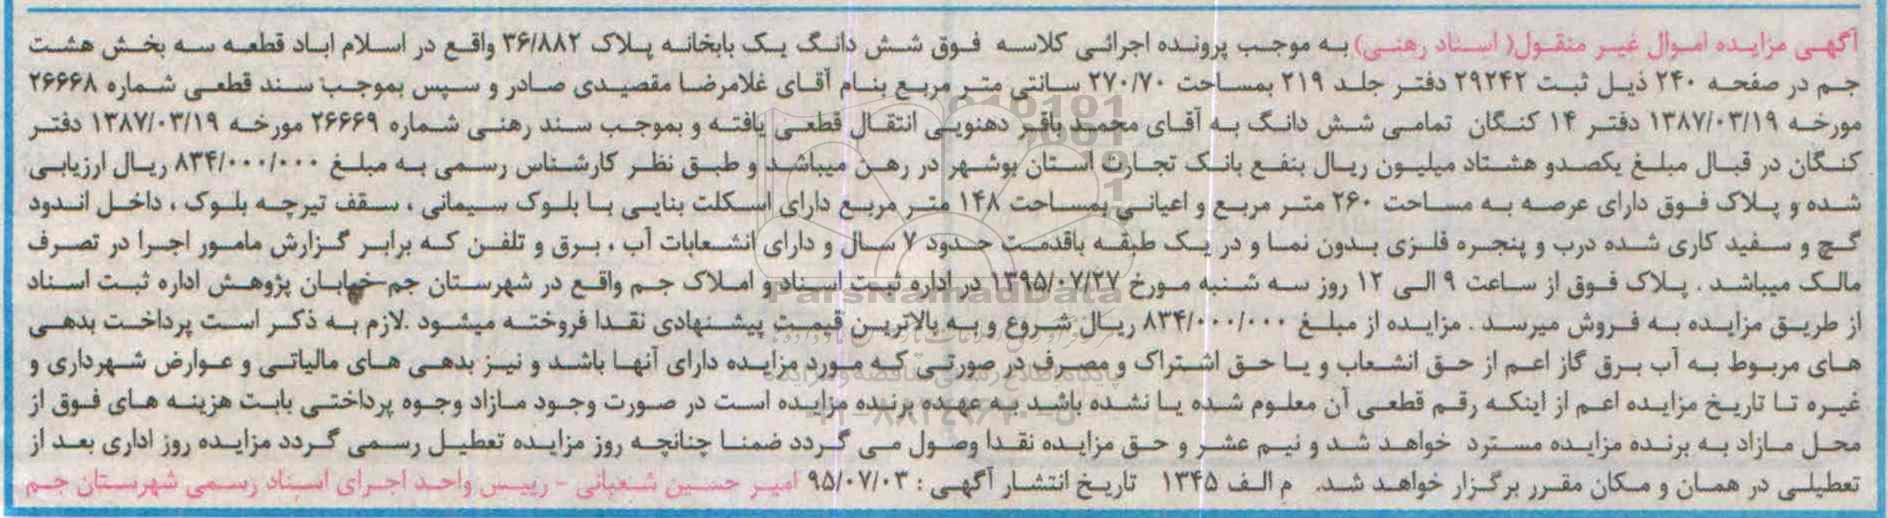 آگهی مزایده اموال غیر منقول( اسناد رهنی) به موجب پرونده اجرائی کلاسه فوق شش دانگ یک بابخانه پلاک ۳۶/۸۸۲ واقع در اسلام اباد قطعه سه بخش هشت
جم در صفحه ۲۴۰ ذیل ثبت ۲۹۲۴۲ دفتر جلد ۲۱۹ بمساحت ۲۷۰/۷۰ سانتی متر مربع بنام آقای غلامرضا مقصیدی صادر و سپس بموجب سند قطعی شماره ۲۶۶۶۸
مورخه ۱۳۸۷/۰۳/۱۹ دفتر ۱۴ کنگان تمامی شش دانگ به آقای محمد باقر دهنویی انتقال قطعی یافته و بموجب سند رهنی شماره ۲۶۶۶۹ مورخه ۱۳۸۷/۰۳/۱۹ دفتر
کنگان در قبال مبلغ یکصدو هشتاد میلیون ریال بنفع بانک تجارت استان بوشهر در رهن میباشد و طبق نظر کارشناس رسمی به مبلغ ۸۳۴/۰۰۰/۰۰۰ ریال ارزیابی
شده و پلاک فوق دارای عرصه به مساحت ۲۶۰ متر مربع و اعیانی بمساحت ۱۴۸ متر مربع دارای اسکلت بنایی با بلوک سیمانی ، سقف تیرچه بلوک ، داخل اندود
گچ و سفید کاری شده درب و پنجره فلزی بدون نما و در یک طبقه باقدمت حدود ۷ سال و دارای انشعابات آب ، برق و تلفن که برابر گزارش مامور اجرا در تصرف
مالک میباشد . پلاک فوق از ساعت ۹ الی ۱۲ روز سه شنبه مورخ ۱۳۹۵/۰۷/۲۷ در اداره ثبت اسناد و املاک جم واقع در شهرستان جم-خیابان پژوهش اداره ثبت اسناد
از طریق مزایده به فروش میرسد . مزایده از مبلغ ۸۳۴/۰۰۰/۰۰۰ ریال شروع و به بالاترین قیمت پیشنهادی نقدا فروخته میشود .لازم به ذکر است پرداخت بدهی
های مربوط به آب برق گاز اعم از حق انشعاب و یا حق اشتراک و مصرف در صورتی که مورد مزایده دارای آنها باشد و نیز بدهی های مالیاتی و عوارض شهرداری و
غیره تا تاریخ مزایده اعم از اینکه رقم قطعی آن معلوم شده یا نشده باشد به عهده برنده مزایده است در صورت وجود مازاد وجوه پرداختی بابت هزینه های فوق از
محل مازاد به برنده مزایده مسترد خواهد شد و نیم عشر و حق مزایده نقدا وصول می گردد ضمنا چنانچه روز مزایده تعطیل رسمی گردد مزایده روز اداری بعد از
تعطیلی در همان و مکان مقرر برگزار خواهد شد. م الف ۱۳۴۵ تاریخ انتشار آگهی : ۹۵/۰۷/۰۳ امیر حسین شعبانی - رییس واحد اجرای اسناد رسمی شهرستان جم
ParsNamadData